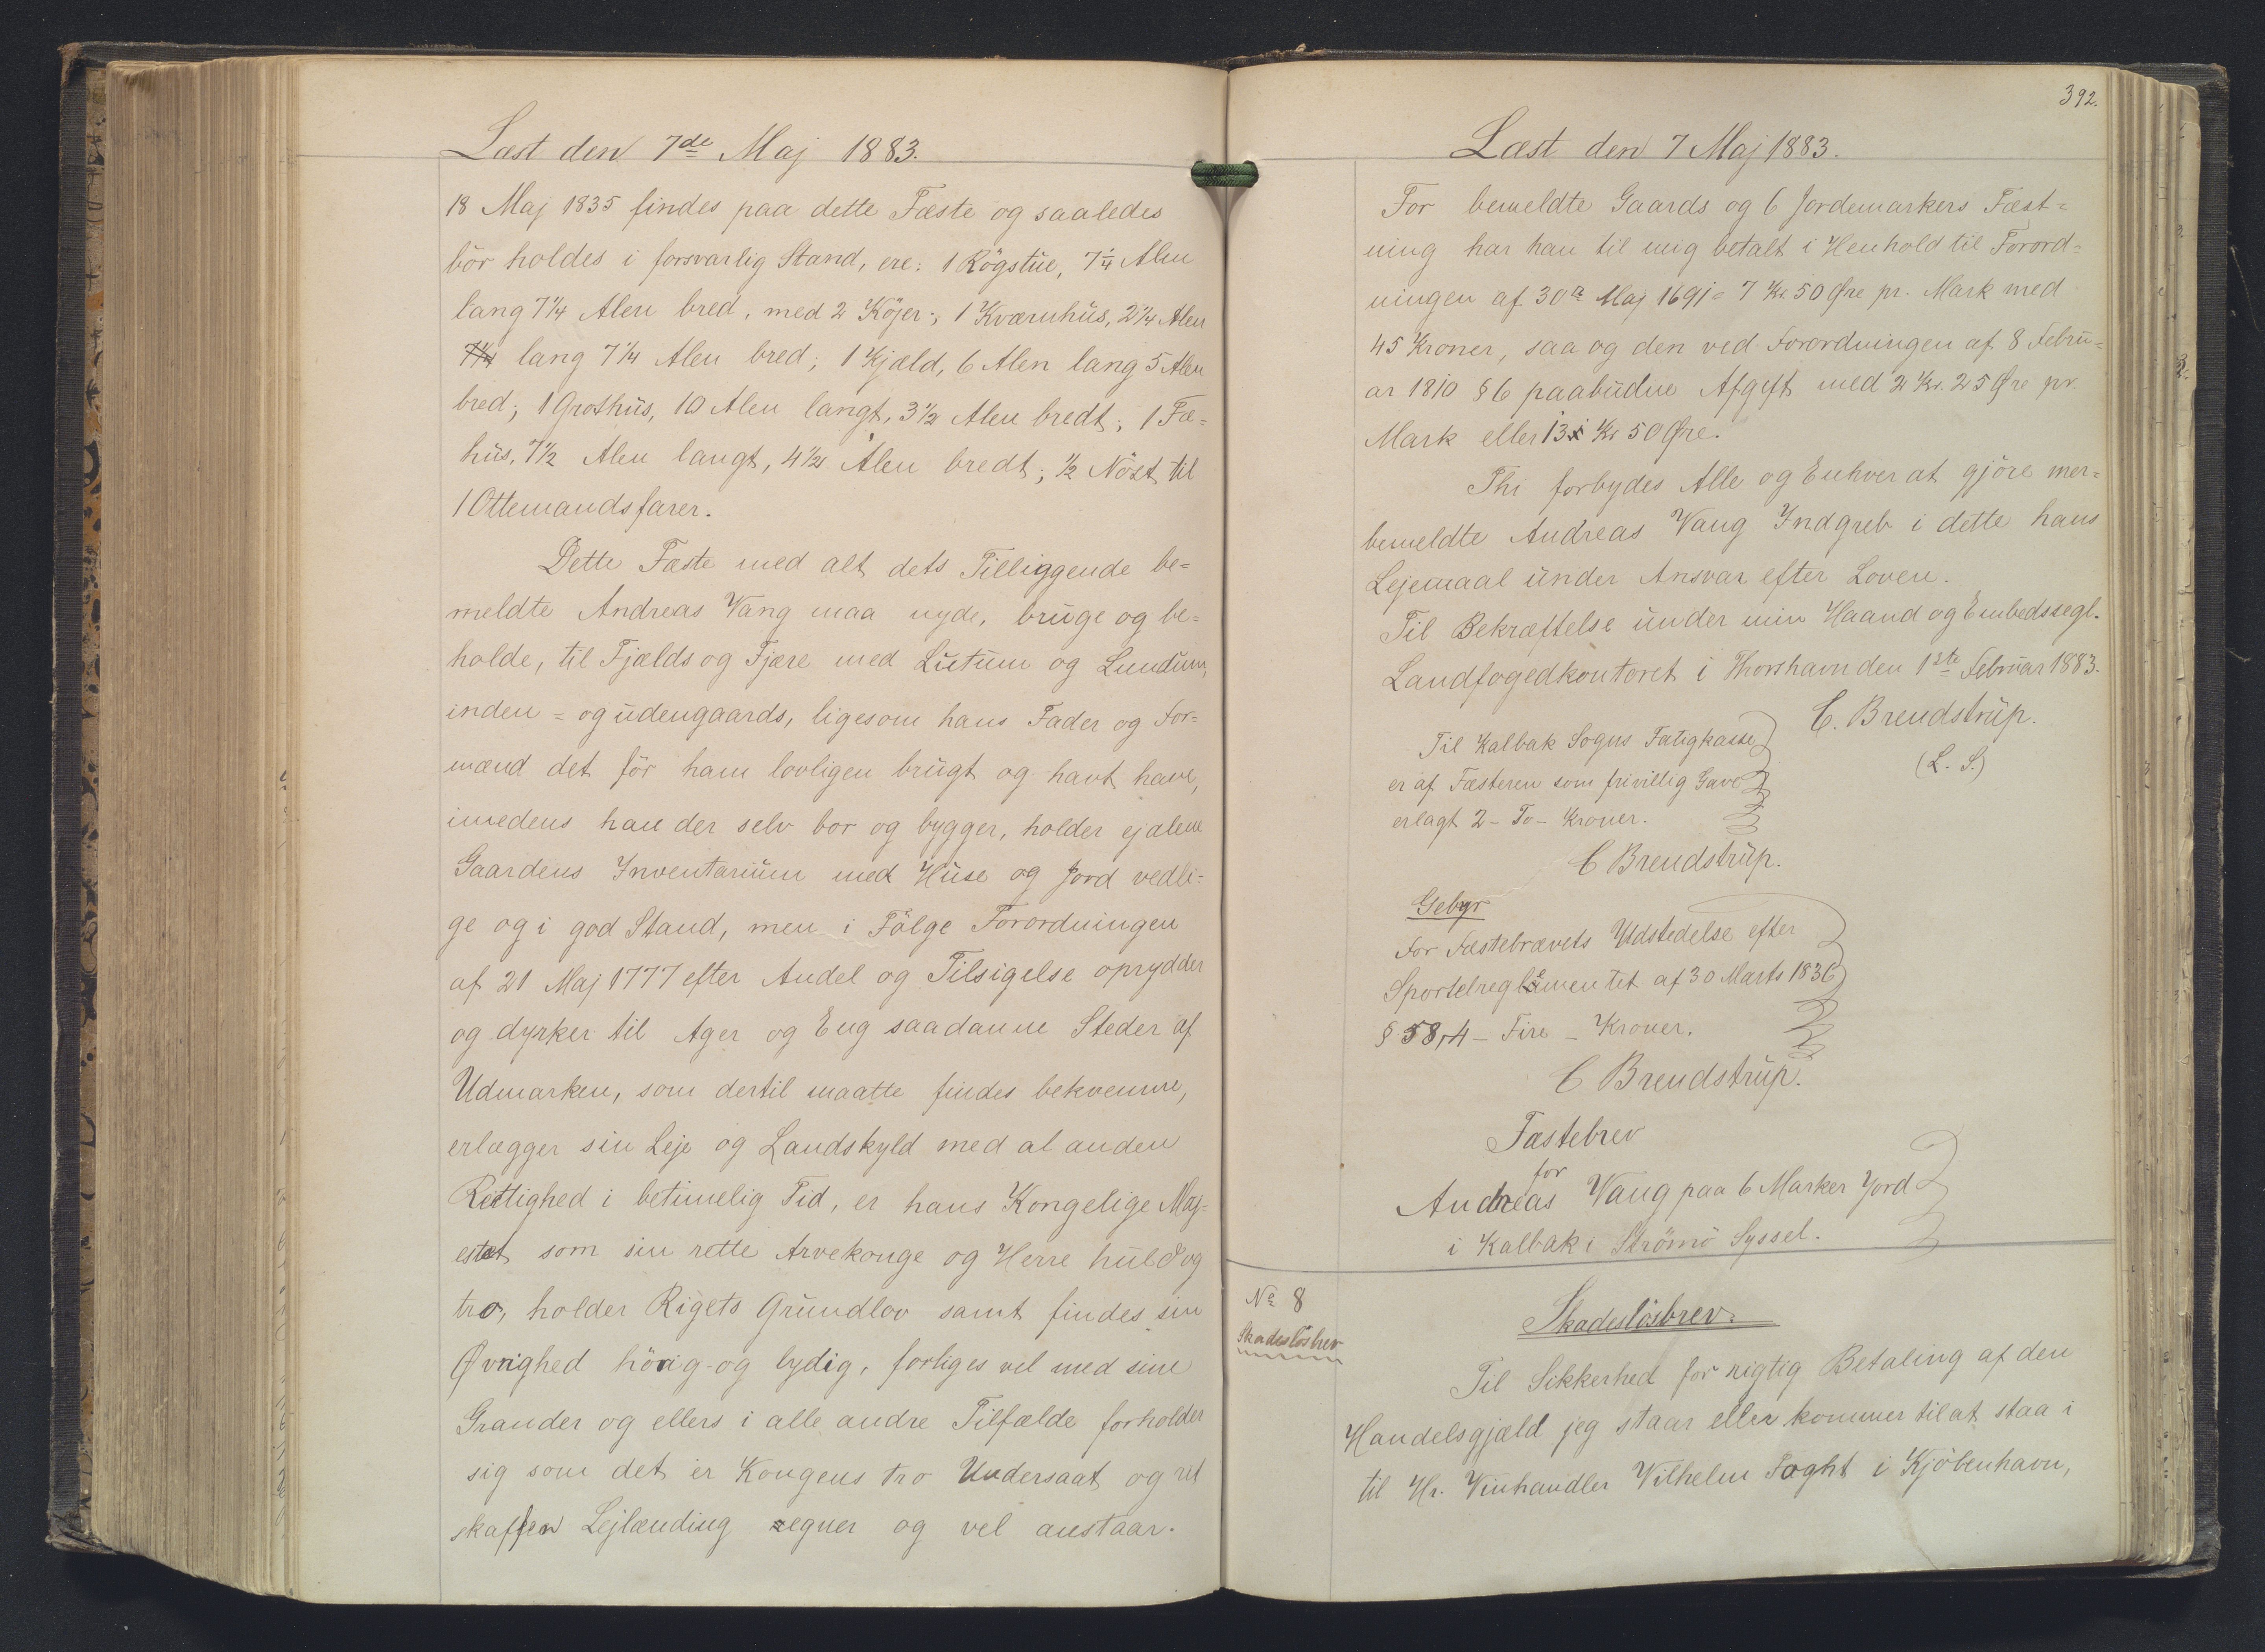 Læst den 7de Maj 1883.
18 Maj 1835 findes paa dette Fæste og saaledes
bör holdes i forsvarlig Stand, ere: 1 Rögstue, 7¼ Alen
lang 7¼ Alen bred, med 2 Köjer; 1 Kværnhus, 2¼ Alen
lang 7¼ Alen bred; 1 Kjæld, 6 Alen lang 5 Alen
bred; 1 Grothus, 10 Alen langt, 3½ Alen bredt; 1 Fæ=
hus, 7½ Alen langt, 4½ Alen bredt; ½ Nöst til
1 Ottemandsfarer.
Dette Fæste med alt dets Tilliggende be=
meldte Andreas Vang maa nyde, bruge og be=
holde, til Fjælds og Fjære med Lutum og Lundum,
inden= og udengaards, ligesom hans Fader og For=
mænd det för ham lovligen brugt og havt have,
imedens han der selv bor og bygger, holder ejalene
Gaardens Inventarium med Huse og Jord vedli=
ge og i god Stand, men i Fölge Forordningen
af 21 Maj 1777 efter Andel og Tilsigelse oprydder
og dyrker til Ager og Eng saadanne Steder af
Udmarken, som dertil maatte findes bekvemme,
erlægger sin Leje og Landskyld med al anden
Rettighed i betimelig Tid, er hans Kongelige Maj=
estæt som sin rette Arvekonge og Herre huld og
tro, holder Rigets Grundlov samt findes sin
Øvrighed hörig og lydig, forliges vel med sine
Grander og ellers i alle andre Tilfælde forholder
sig som det er Kongens tro Undersaat og ret
skaffen Lejlænding egner og vel anstaar.
392.
Læst den 7 Maj 1883.
For bemeldte Gaards og 6 Jordemarkers Fæst=
ning har han til mig betalt i Henhold til Forord=
ningen af 30te Maj 1691 = 7 Kr. 50 Øre pr. Mark med
45 Kroner, saa og den ved Forordningen af 8 Febru=
ar 1810 § 6 paabudne Afgift med 2 Kr. 25 Øre pr.
Mark eller 13 Kr 50 Øre.
Thi forbydes Alle og Enhver at gjöre mer=
bemeldte Andreas Vang Indgreb i dette hans
Lejemaal under Ansvar efter Loven.
Til Bekræftelse under min Haand og Embedssegl.
Landfogedkontoret i Thorshavn den 1ste Februar 1883.
C. Brendstrup.
(L. S.)
Til Kalbak Sogns Fatigkasse
er af Fæsteren som frivillig Gave
erlagt 2 - To - Kroner.
C Brendstrup.
Gebyr
For Fæstebrevets Udstedelse efter
Sportelreglementet af 30 Marts 1836
§ 58, 4 - Fire - Kroner.
C Brendstrup.
Fæstebrev
for
Andreas Vang paa 6 Marker Jord
i Kalbak i Strömö Syssel.
No 8
Skadeslösbrev
Skadeslösbrev.
Til Sikkerhed for rigtig Betaling af den
Handelsgjæld jeg staar eller kommer til at staa i
til Hr. Vinhandler Vilhelm Foght i Kjöbenhavn,